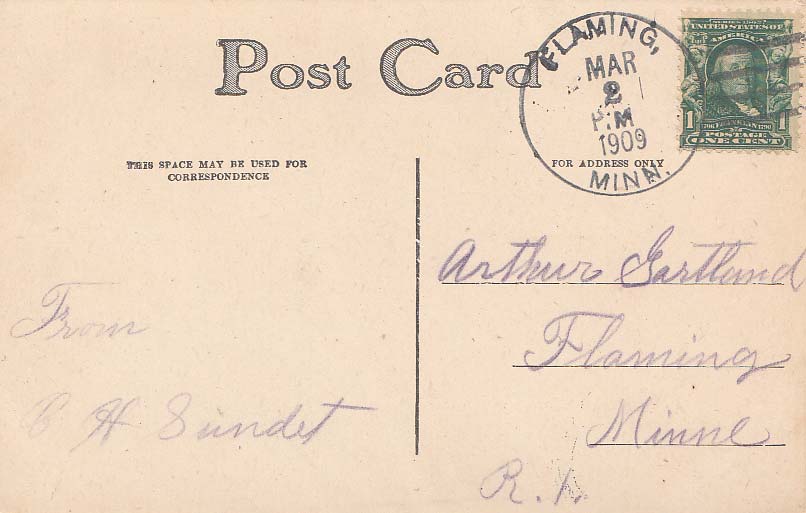 Post Card
FLAMING,
MAR
2
P.M
1909
MINN.
SERIES 1902
UNITED STATES OF
AMERICA
1706 FRANKLIN 1790
1 1
POSTAGE
ONE CENT
THIS SPACE MAY BE USED FOR
CORRESPONDENCE
FOR ADDRESS ONLY
Arthur Gartland
Flaming
Minne
R. 1.
From
C H Sundet